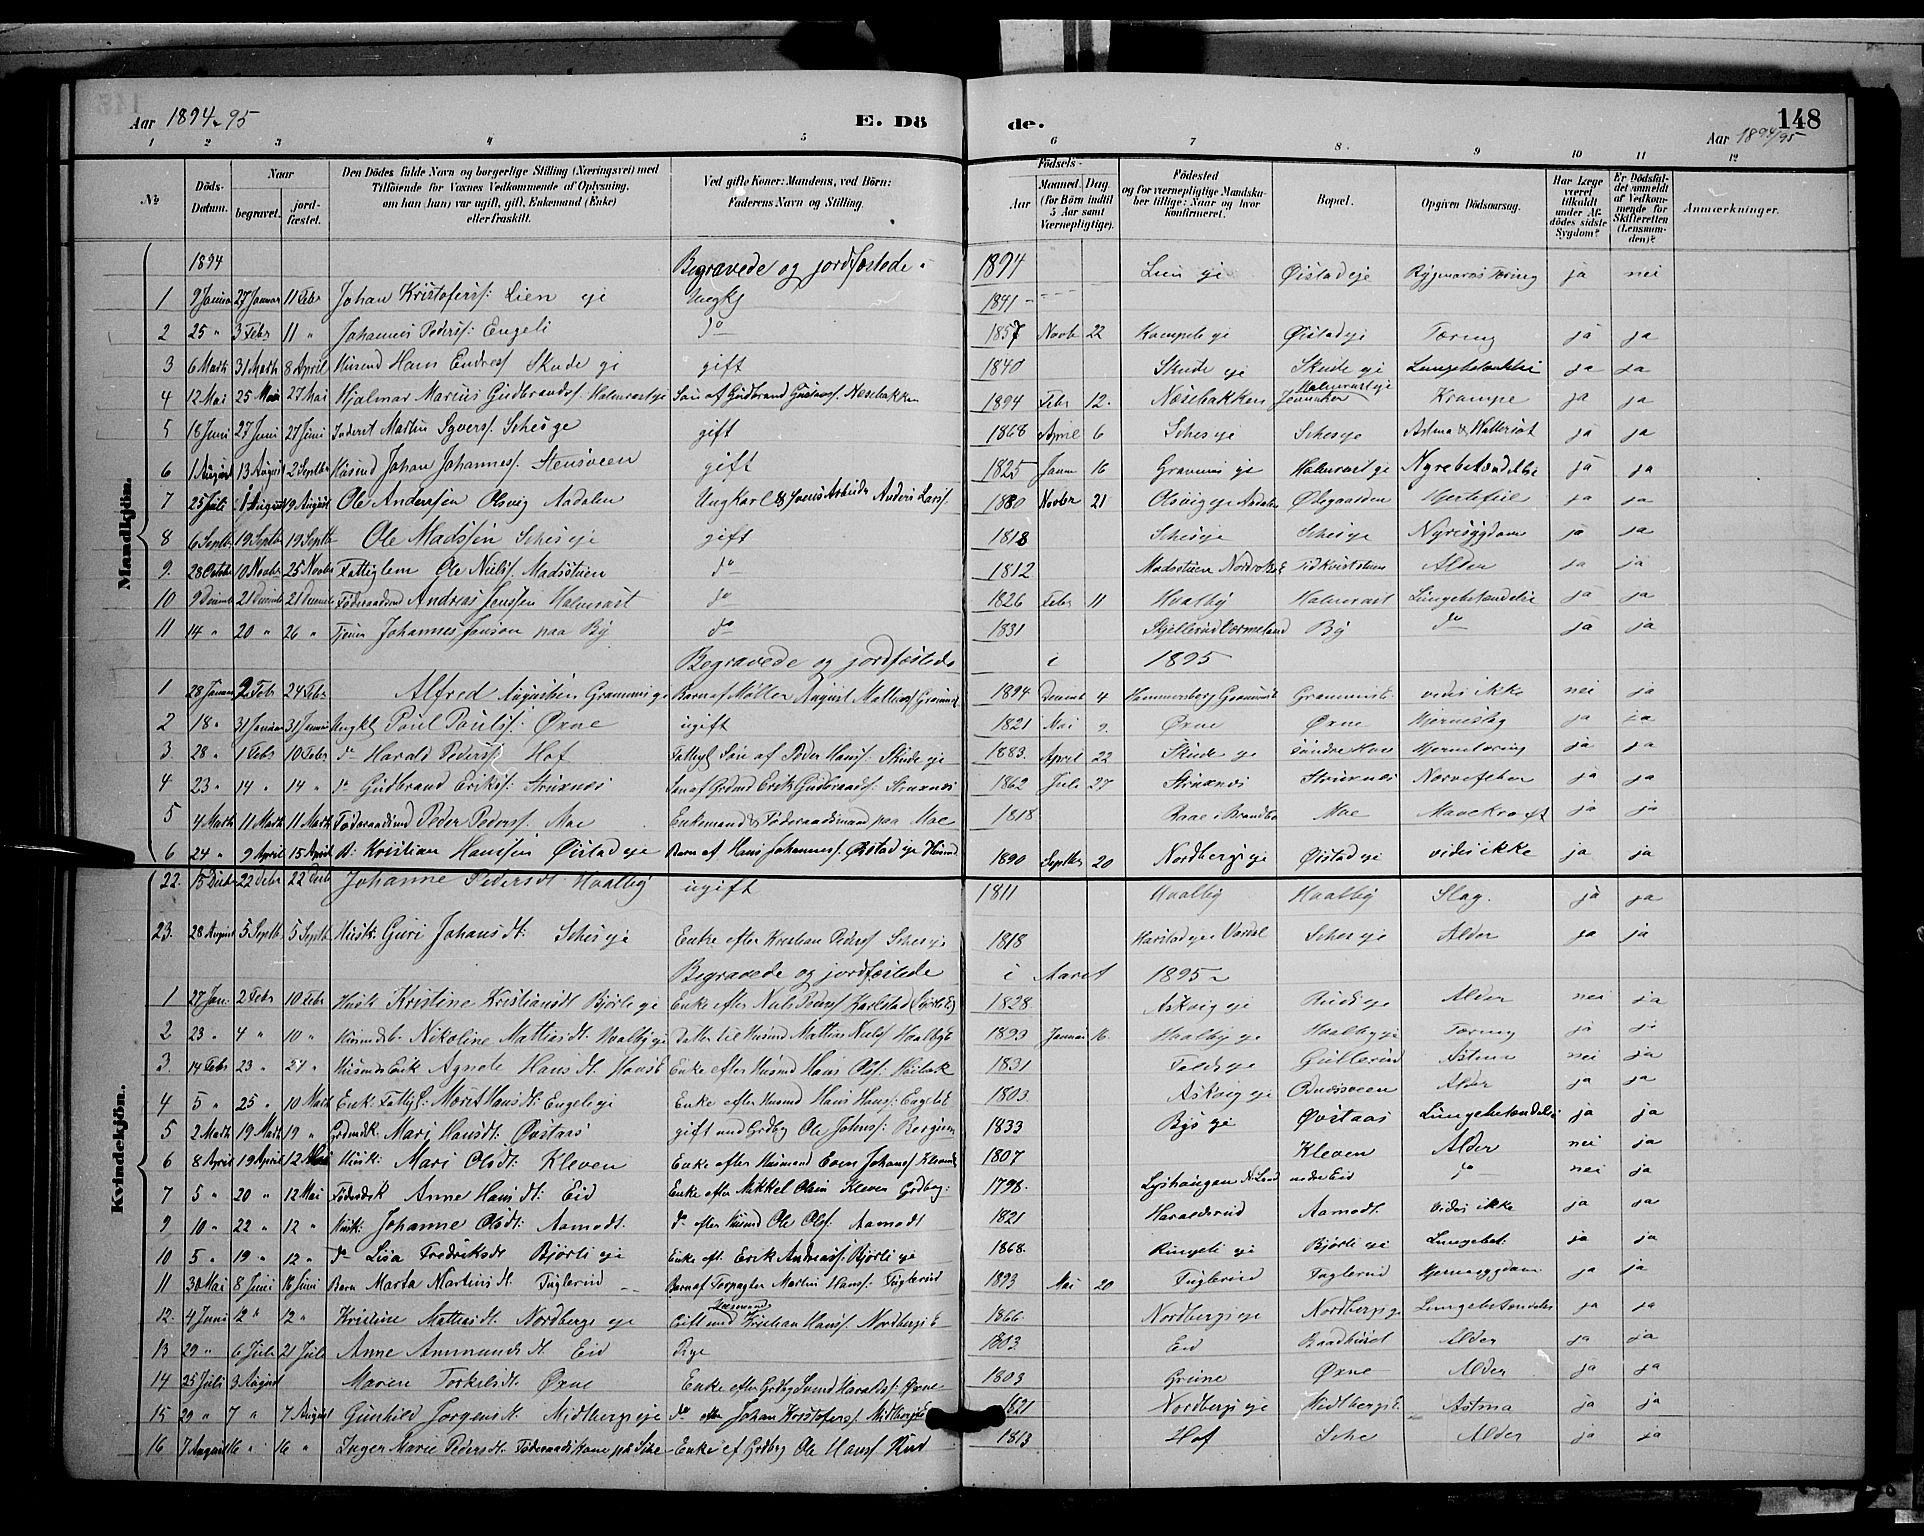 Aar 1894-95 E. Dö de. 148
Aar 1894/95
1 2 3 4 5 6 7 8. 9 10 11 12
No Döds-Datum. Naar begravet. jordfæstet. Den Dödes fulde Navn og borgerlige Stilling (Næringsvei) med Tilföiende for Voxnes Vedkommende af Oplysning, om han (hun) var ugift, gift, Enkemand (Enke) eller fraskilt. Ved gifte Koner: Mandens, ved Börn: Faderens Navn og Stilling. Födsels- Aar Maaned. Dag (for Börn indtil 5 Aar samt Værnepligtige). Födested og for værnepligtige Mandskaber tillige: Naar og hvor konfirmeret. Bopæl. Opgiven Dödsaarsag. Har Læge været tilkaldt under Afdödes sidste Sygdom? Er Dödsfaldet anmeldt af Vedkommende for Skifteretten (Lensmanden)? Anmærkninger.
Mandkjön.
1894 Begravede og jordfæstede 1894 Lien eje Øistad eje Rygmarvs Tæring ja nei
1 9 Januar 27 Januar 11 Febr Johan Kristofers: Lien eje Ungk 1841
2 25 " 3 Febr 11 " Johannes Peders: Engeli do 1857 Novb 22 Kampeli eje Øistad eje Tæring ja ja
3 6 Marts 31 Marts 8 April Husmd Hans Endres Skude eje gift 1840 Skude eje Skude eje Lungebetændelse ja ja
4 12 Mai 25 Mai 27 Mai Hjalmar Marius Gudbrands: Halmrast eje Søn af Gudbrand Gustavs: Næsebakken 1894 Febr 12. Næsebakken Jevnaker Halmrast eje Krampe ja ja
5 18 Juni 27 Juni 27 Juni Inderst Martin Syvers: Sches eje gift 1868 April 6 Sches eje Sches eje Astma & Vattersot ja ja
6 1 August 13 August 2 Septbr Husmd Johan Johannes: Stensveen gift 1825 Janu 16 Gravnis eje Halmrast eje Nyrebetændelse ja ja
7 25 Juli 1 August 9 August Ole Anderssen Olsvig Aadalen Ungkarl & Søn af Arbeider Anders Lars: 1880 Novbr 21 Olsvig eje Aadalen Ødegaarden Hjertefeil ja ja
8 6 Septb 19 Septb 19 Septb Ole Madssen Sches eje gift 1818 Sches eje Sches eje Nyresygdom ja ja
9. 28 Octob 10 Novb 25 Novbr Fattiglem Ole Niels: Madsstuen do 1812 Madsstuen Alder ja ja
10 9 Decemb 21 Decemb 21 Decemb Föderaadsmd Andreas Jenssen Halmrast do 1826 Febr 11 Hvalby Halmrast Lungebetændelse ja ja
11 14 " 20 " 26 " Tjener Johannes Jonson paa By do 1831 Skjellerud Værmeland By do ja ja
Begravede og jordfæstede i 1895
1 28 Januar 2 Febr 24 Febr Alfred Augustsen Gramnis eje Barn af Møller August Mathias: 1894 Decemb 4 Hammersberg Gramnis E. vides ikke nei ja
2 18 " 31 Januar 31 Januar Ungk Poul Pouls: Øxne ugift 1821 Mai 9. Øxne Øxne Hjerneslag ja ja
3. 28 " 1 Febr 10 Febr do Harald Peders Hof Fattigl Søn af Peder Hans: Skude eje 1883. April 22 Skude eje Søndre Hov Hjernetæring ja ja
4 23 " 14 " 14 " do Gudbrand Eriks: Struxnæs Søn af Grdmd Erik Gudbrands: Struxnæs 1862 Juli 27 Struxnæs Struxnæs Nervefeber ja ja
5 4 Marts 11 Marts 11 Marts Föderaadsmd Peder Peders: Moe Enkemand & Föderaadsmand paa Moe 1818 Moe Mavekræft ja ja
6 24 " 9 April 15 April Kristian Hanssen Øistad eje Barn af Hans Johannes: Øistad eje Husmd 1890 Septbr 20 Nordbergs eje Øistad eje vides ikke ja ja
Kvindekjön.
22. 15 Decbr 22 Decbr 22 Decb Johanne Pedersdt: Hvalby ugift 1811 Hvalby Hvalby Slag. ja ja
23. 28 August 5 Septb 5 Septb Husk: Guri Johansdt: Sches eje Enke efter Kristian Peders Sches eje 1818 Harstad eje Vardal Sches eje Alder ja ja
Begravede og jordfæstede i Aaret 1895
1 27 Jan: 2 Febr 10 Febr Husk Kristine Kristiansdt Bjørli eje Enke efter Niels Peders Karlstad (Bjørli E) 1828 Askvig eje Ruds eje Alder nei ja
2 23 " 4 " 10 " Nikoline Mattiasdt Hvalby eje Datter til Husmd Mattias Niels Hvalby E 1893 Januar 16. Hvalby eje Hvalby eje Tæring ja ja
3. 14 Febr 23 " 24 " Husmds Enk Agnete Hansdt. Enke efter Husmd Hans Ols: 1831 Fald eje Gullerud Astma nei ja
4 5 " 25 " 10 Marts Enk: Fattigl: Marit Hansdt: Engeli eje Enke efter Husmd Hans Hans: Engeli E 1803 Askvig eje Alder ja ja
5 2 Marts 19 Marts 19 " Grdmdsk. Mari Hansdt: Øvstaas gift med Grdbrg Ole Johns: Bergum 1833 Bys eje Øvstaas Lungebetændelse ja ja
6 8 April 19 April 12 Mai Husk: Mari Olsdt: Kleven Enke efter Husmand Even Johans Kleven 1807 Kleven Alder nei ja
7 5 " 20 " 12 Mai Föderdsk Anne Hansdt: Eid Enke efter Mikkel Olsen Kleven Grdbrg: 1798. N: Land nedre Eid do nei ja
9 10 " 22 " 12 " Husk: Johanne Olsdt: Aamodt. do efter Husmd Ole Ols: Aamodt 1821 Haraldsrud Aamodt vides ikke ja ja
10 5 " 19 " 12 " do Lisa Fredriksdt Bjørli eje Enke eft. Erik Andreas: Bjørli eje 1868. Ringeli eje Bjørli eje Lungebet. ja ja
11 30 Mai 8 Juni 16 Juni Barn Marta Martinsdt. Fuglerud Barn af Forpagter Martin Hans: Fuglerud 1893 Mai 20 Fuglerud Fuglerud Hjernesygdom ja ja
12. 4 Juni 12 " 12 " Kristine Mattiasdt Nordbergs eje Gift med Husmand Kristian Hans: Nordbergs E 1866. Nordbergs eje Nordbergs eje Lungebetændelse ja ja
13 29 " 6 Juli 21 Juli Anne Ammundsdt. Eid Pige 1803 Eid Alder ja ja
14 25 Juli 3 August Maren Torkelsdt. Øxne Enke efter Grdbrg Svend Haralds: Øxne 1803 Grime Øxne Alder ja ja
15 29 " 7 " 7 August Gunhild Jørgensdt. Midtbergs eje do efter Johan Kristofers: Midtbergs E 1821 Nordbergs eje Midtbergs E. Astma ja ja
16 7 August 16 " 16 " Inger Marie Pedersdt: Föderaadskone paa Sche Enke ef Grdbrg Ole Hans: Rud 1813 Hof Sche Alder ja ja